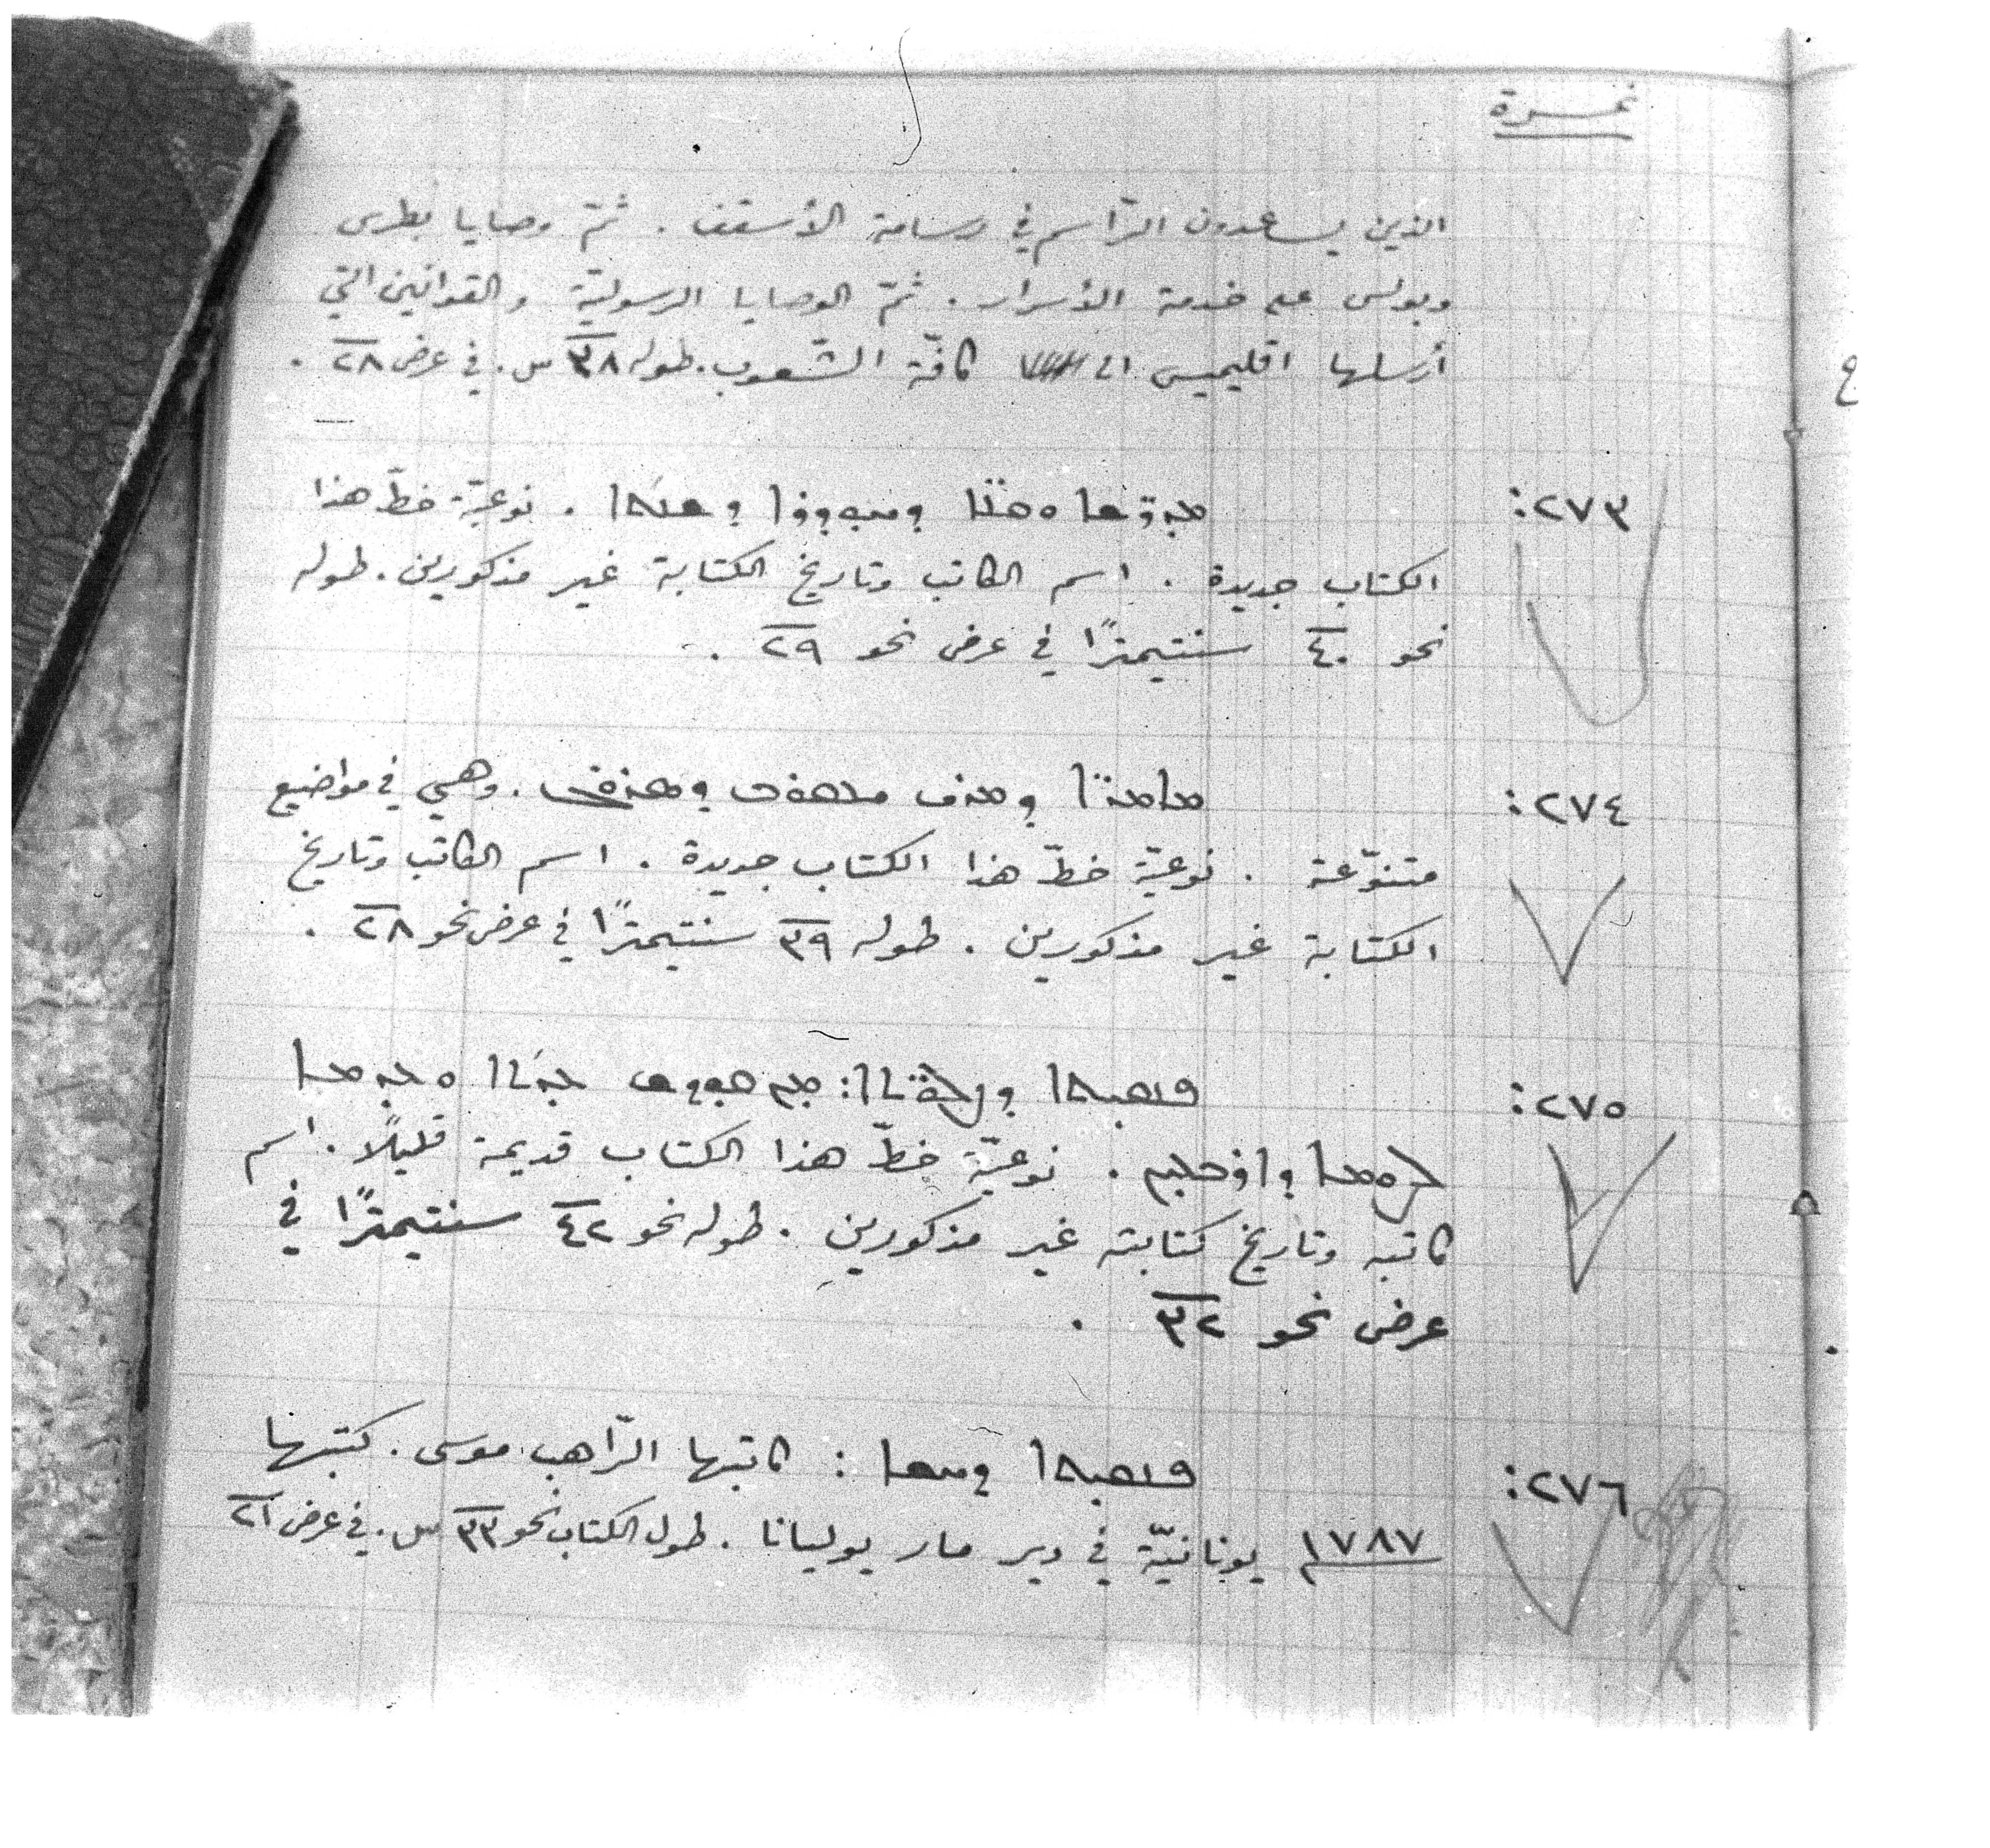 نمرة
الذين يساعدون الرّاسم في رسامة الأسقف . ثمّ وصايا بطرس
وبولس على خدمة الأسرار . ثمّ الوصايا الرسوليّة والقوانين التي
أرسلها اقليميس الى كافّة الشّعوب . طوله ٣٨ س . في عرض ٢٨ .
٢٧٣ : ܘܡܢ̈ܐ ܕܚܘܕܪܐ ܕܫܢܬܐ . نوعيّة خطّ هذا
الكتاب جديدة . اسم الكاتب وتاريخ الكتابة غير مذكورين . طوله
نحو ٤٠ سنتيمترًا في عرض نحو ٢٩ .
٢٧٤ : ܡܐܡܪ̈ܐ ܕܡܪܝ ܝܥܩܘܒ ܕܣܪܘܓ . وهي في مواضيع
متنوّعة . نوعيّة خطّ هذا الكتاب جديدة . اسم الكاتب وتاريخ
الكتابة غير مذكورين . طوله ٣٩ سنتيمترًا في عرض نحو ٢٨ .
٢٧٥ : ܦܢܩܝܬܐ ܕܥܕܥܐܕ̈ܐ : ܡܢ ܩܘܕܫ ܥܕܬܐ ܘܥܕܡܐ
ܕܐܪܒܥܝܢ . نوعيّة خطّ هذا الكتاب قديمة قليلًا . اسم
كاتبه وتاريخ كتابته غير مذكورين . طوله نحو ٤٢ سنتيمترًا في
عرض نحو ٣٢ .
٢٧٦ : ܦܢܩܝܬܐ ܕܚܫܐ : كاتبها الرّاهب موسى . كتبها
١٧٨٧ يونانيّة في دير مار يوليانا . طول الكتاب نحو ٣٣ س . في عرض ٢١